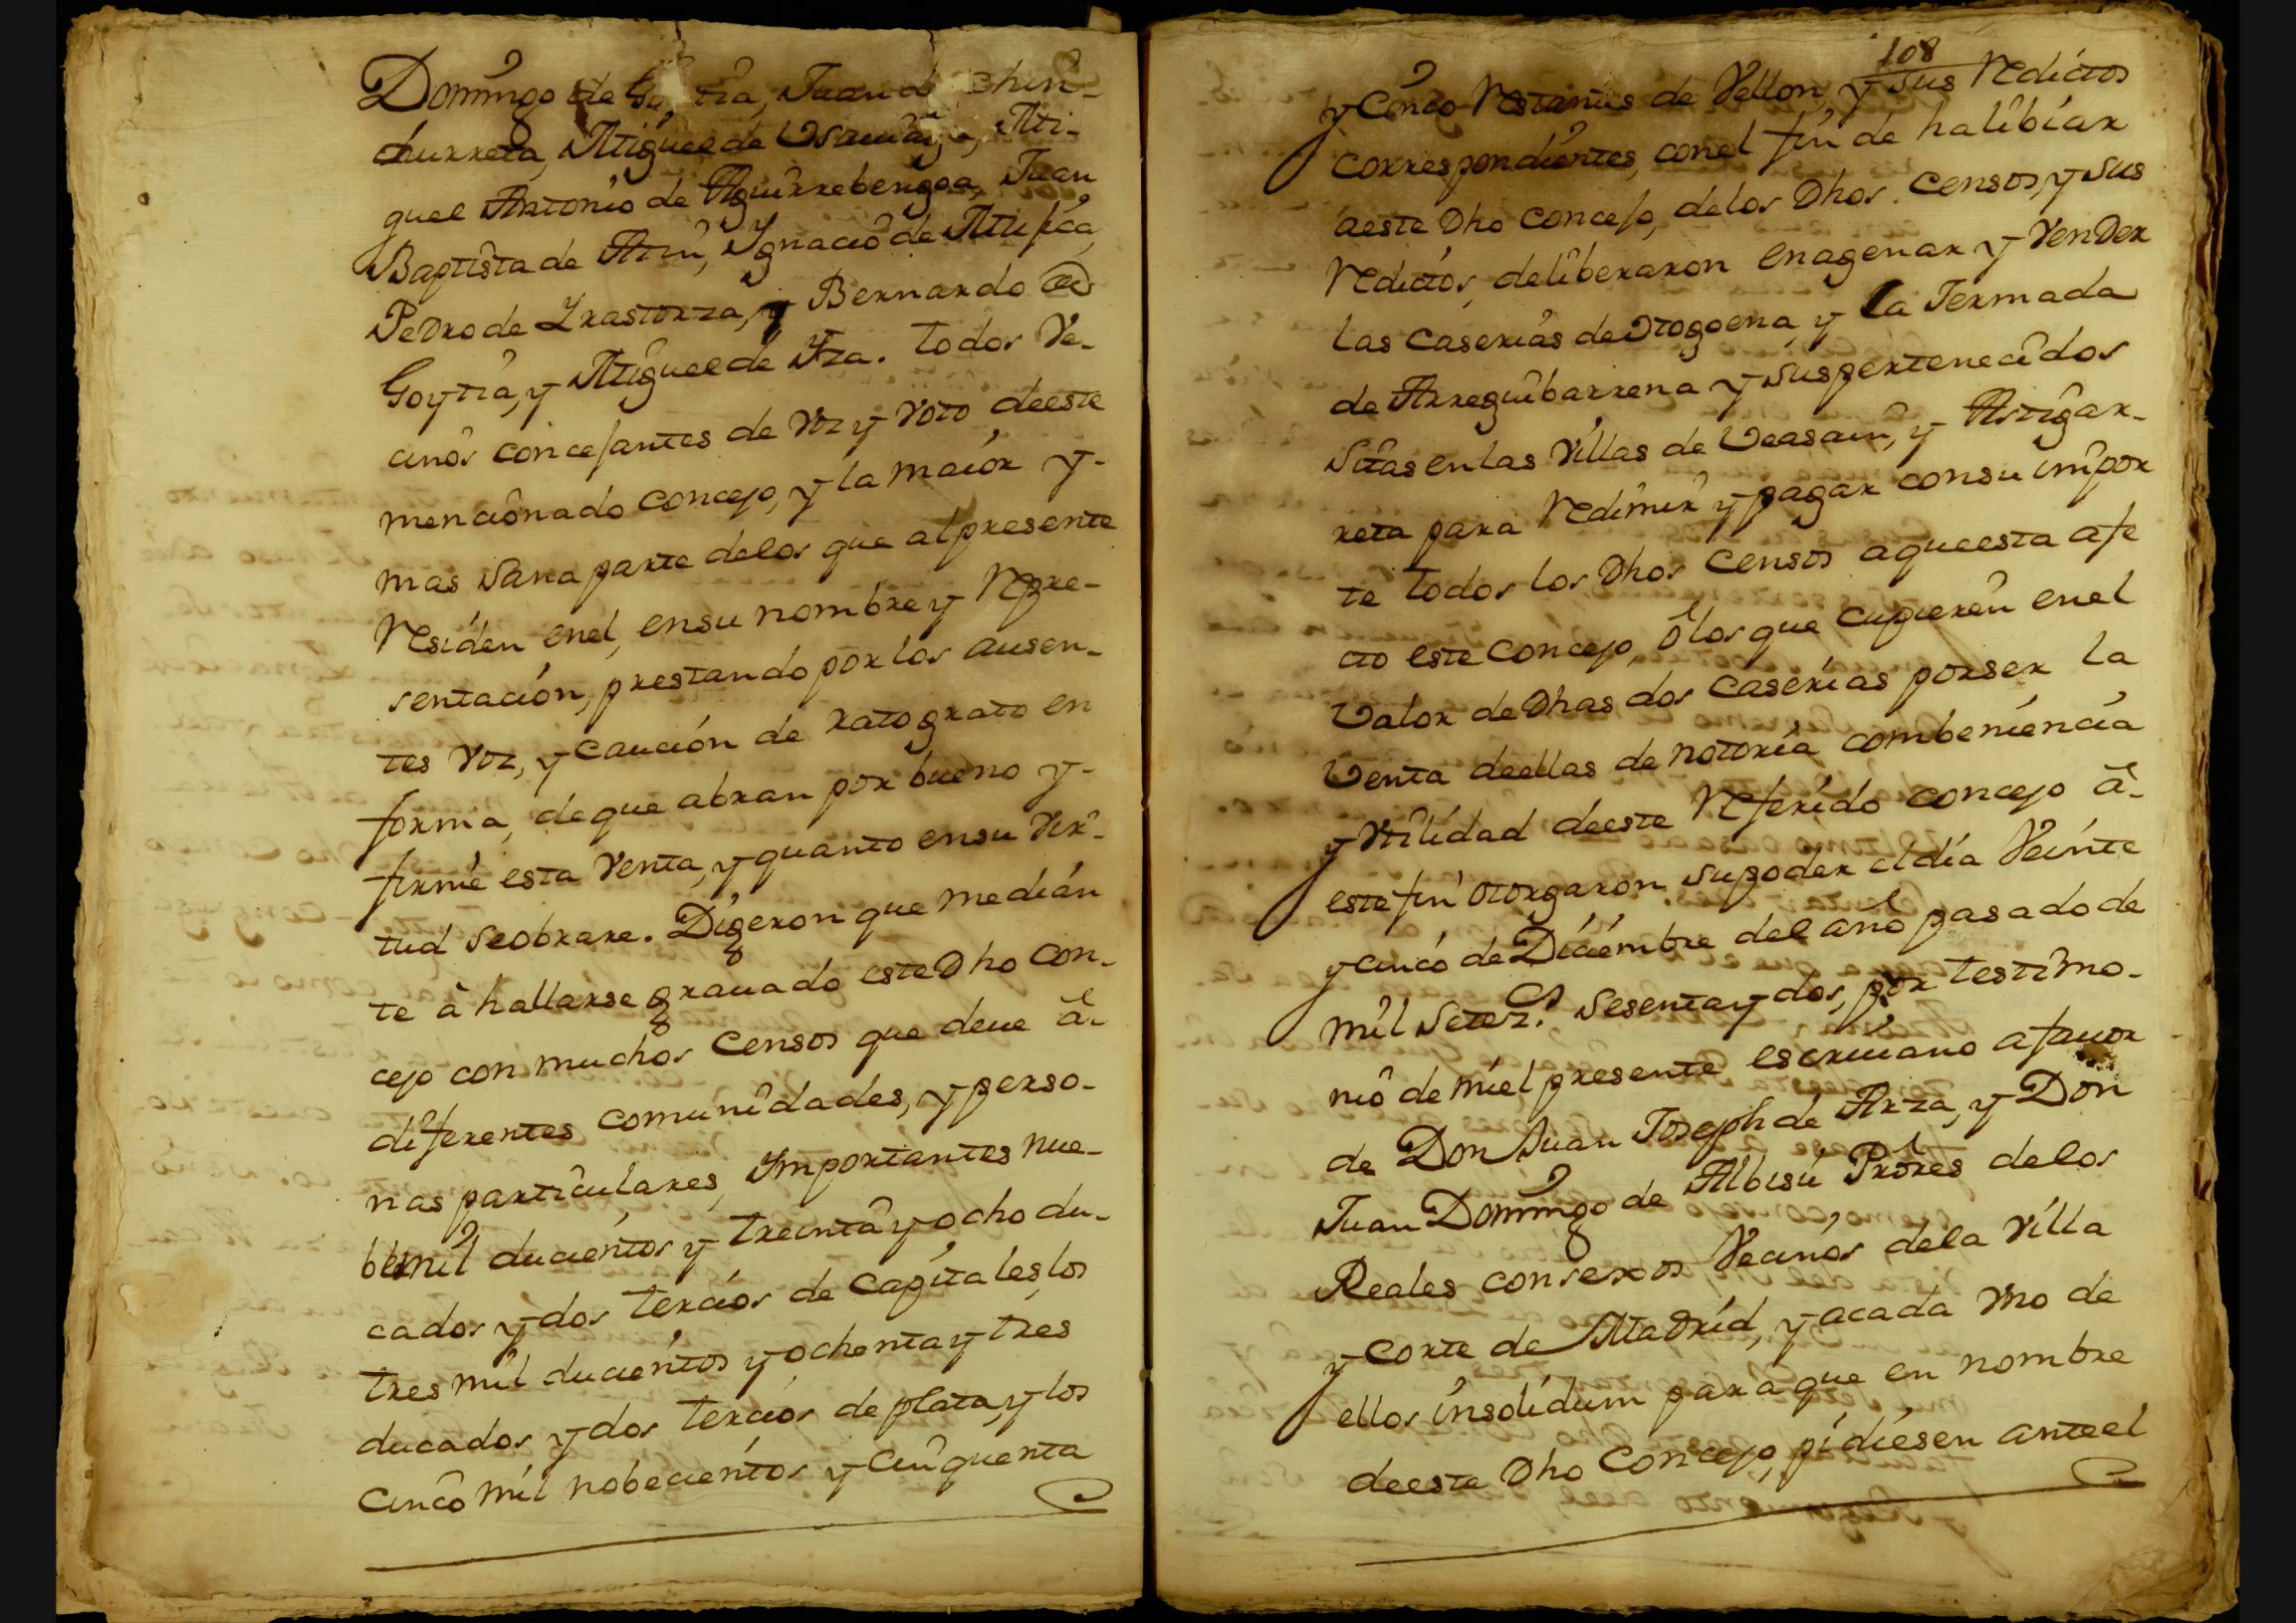 Domingo de Goytia, Juan de Chin-
churreta, Miguel de Usurbiaga, Mi-
guel Antonio de Aguirrebengoa, Juan
Baptista de Atin, Ygnacio de Mujica,
Pedro de Yrastorza, y Bernardo de
Goytia, y Miguel de Yza. todos Ve-
cinos concejantes de voz y voto deeste
mencionado concejo, y la maior y-
mas sana parte delos que alpresente
Residen enel, ensu nombre y Repre-
sentación, prestando por los ausen-
tes voz, y caución de rato grato en
forma, de que abran por bueno y-
firme esta venta, y quanto ensu vir-
tud seobrare. Digeron que median
te â hallarse grauado este Dho con-
cejo con muchos censos que deue â-
diferentes comunidades, y perso-
nas particulares, Ymportantes nue-
bemil ducientos y treinta y ocho du-
cados y dos tercios de capitales, los
tres mil ducientos y ochenta y tres
ducados y dos tercios de plata, y los
cinco mil nobecientos y cinquenta
108
y cinco Restantes de Vellon, y sus Redictos
correspondientes, conel fin de halibiar
aeste Dho concejo, delos Dhos. censos, y sus
Redictos, deliberaron enagenar y vender
las caserias de Otogoena, y la Jermada
de Arreguibarrena y suspertenecidos
Sitas enlas Villas de Veasain, y Astigar-
reta para Redimir y pagar consu impor
te todos los Dhos censos aqueesta afe
cto este concejo, ô los que cupieren enel
Valor de Dhas dos caserias porser la
Venta deellas de notoria combeniencia
y Vtilidad deeste Referido concejo â-
este fin otorgaron supoder el dia Veinte
y cinco de Diciembre del año pasado de
mil Setez.s Sesenta y dos, por testimo-
nio de miel presente escriuano afauor
de Don Juan Joseph de Arza, y Don
Juan Domingo de Albisu Prõres delos
Reales consexos Vecinos dela Villa
y corte de Madrid, y acada vno de
ellos insolidum para que en nombre
deeste Dho concejo, pidiesen anteel